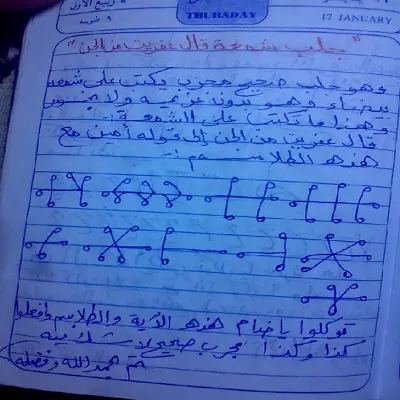 ربيع الأول
THURSDAY
17 JANUARY
" جلب شمعة قال عفريت من الجن "
وهو جلب صحيح مجرب يكتب على شمعه
بيضاء وهو بدون عزيمه ولا بخور
وهذا ما يكتب على الشمعة :
قال عفريت من الجن إلى قوله أمين مع
هذه الطلاسم :-
توكلوا ياخدام هذه الآية والطلاسم وافعلوا
كذا وكذا مجرب صحيح لا شك فيه
تم بحمد الله وفضله